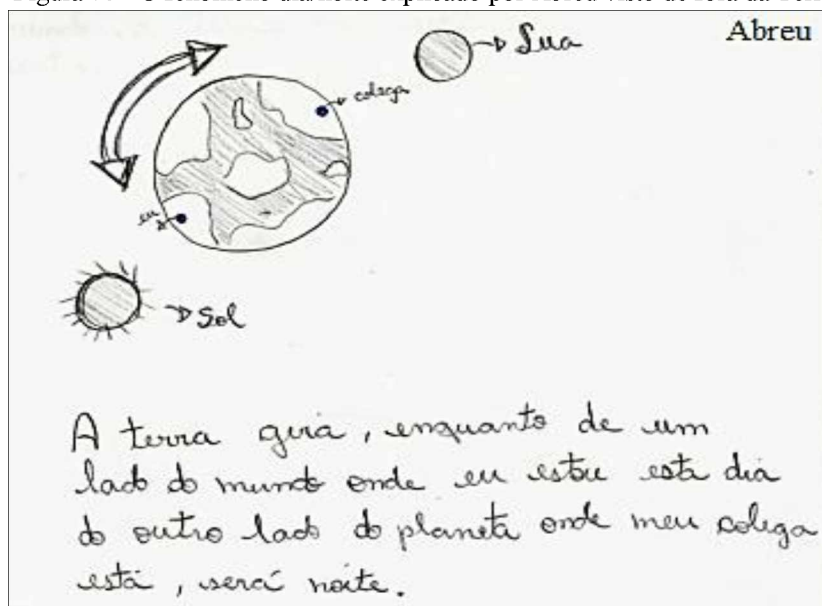 Abreu
Lua
colega
eu
Sol
A terra gira, enquanto de um
lado do mundo onde eu estou está dia
do outro lado do planeta onde meu colega
está, será noite.